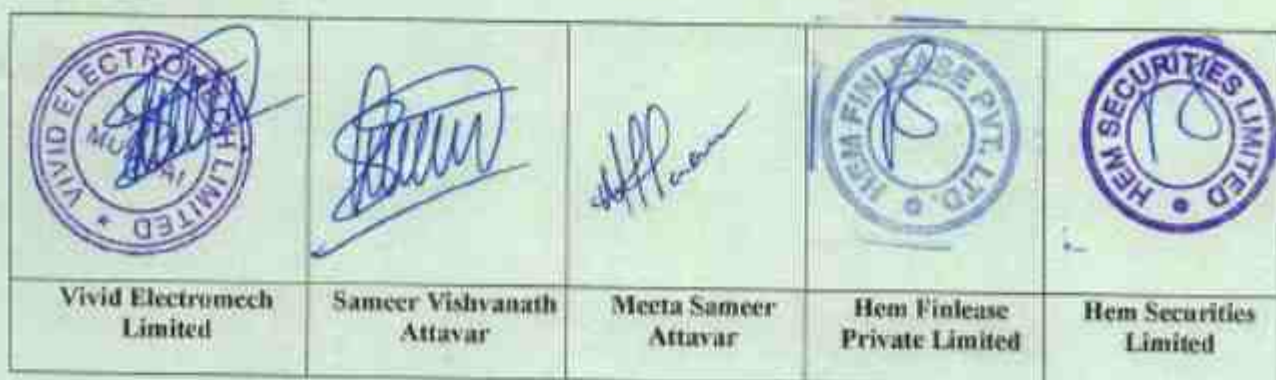 VIVID ELECTROMECH LIMITED
HEM FINLEASE PVT. LTD.
HEM SECURITIES LIMITED
Vivid Electromech
Limited
Sameer Vishvanath
Attavar
Meeta Sameer
Attavar
Hem Finlease
Private Limited
Hem Securities
Limited